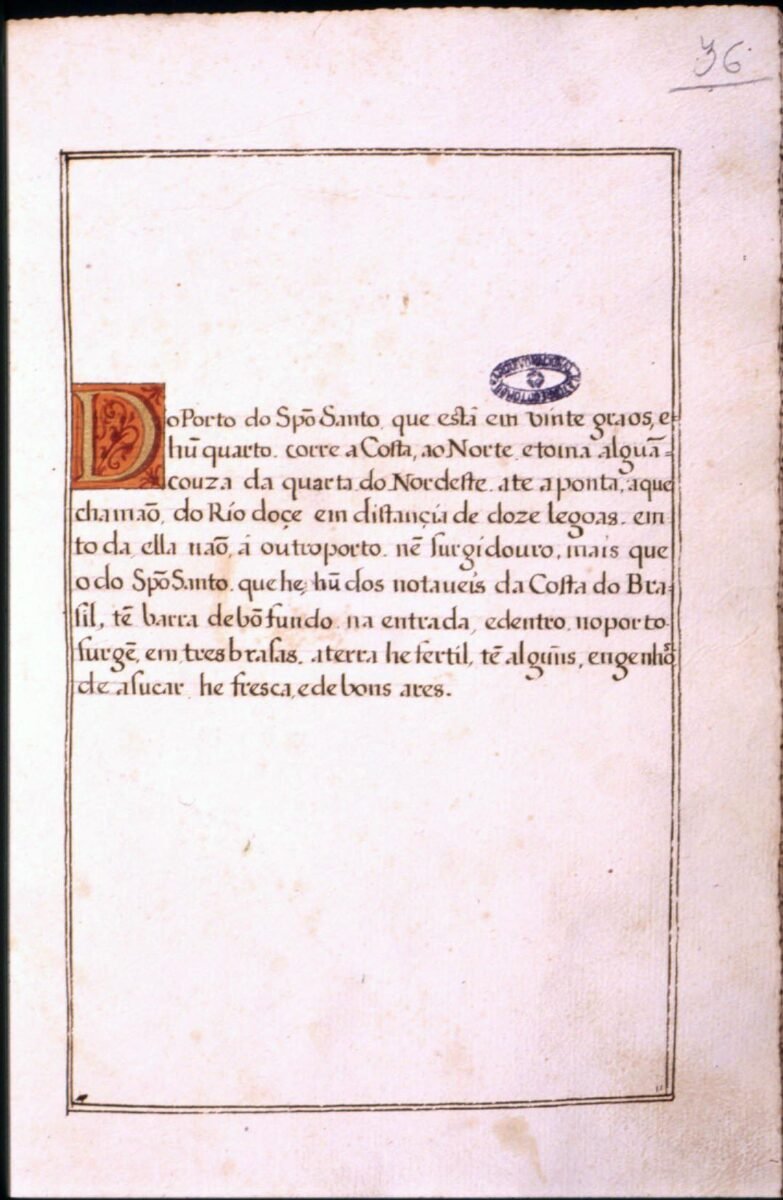 36
DoPorto do Spõ Santo, que está em vinte graos, e
hũ quarto. corre a Costa, ao Norte. e toma alguã=
couza da quarta do Nordeste. ate a ponta, aque
chamaõ, do Río doçe em distançía de doze legoas. em
toda ella naõ, á outroporto. nẽ surgídouro, mais que
o do Spõ Santo. que he, hũ dos notaueís da Costa do Bra=
sil, tẽ barra debõ fundo. na entrada, edentro. noporto
surgẽ, em tres brasas. aterra he fertil, tẽ algũns, engenhos
de asucar, he fresca, ede bons ares.